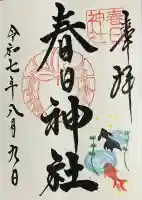 奉拝
春日神社
春日神社
令和七年八月九日